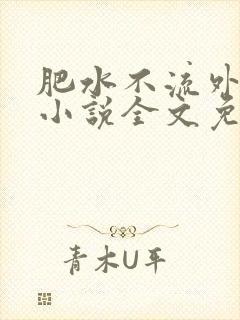 肥水不流外
小说全文免
青木U平